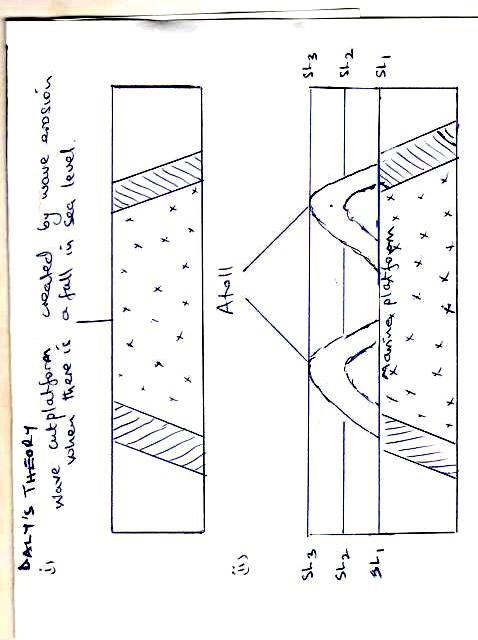 DALY'S THEORY
i)
Wave cut platform created by wave erosion
when there is a fall in sea level.
ii)
SL3
SL3
SL2
SL2
SL1
SL1
Atoll
Marine platform